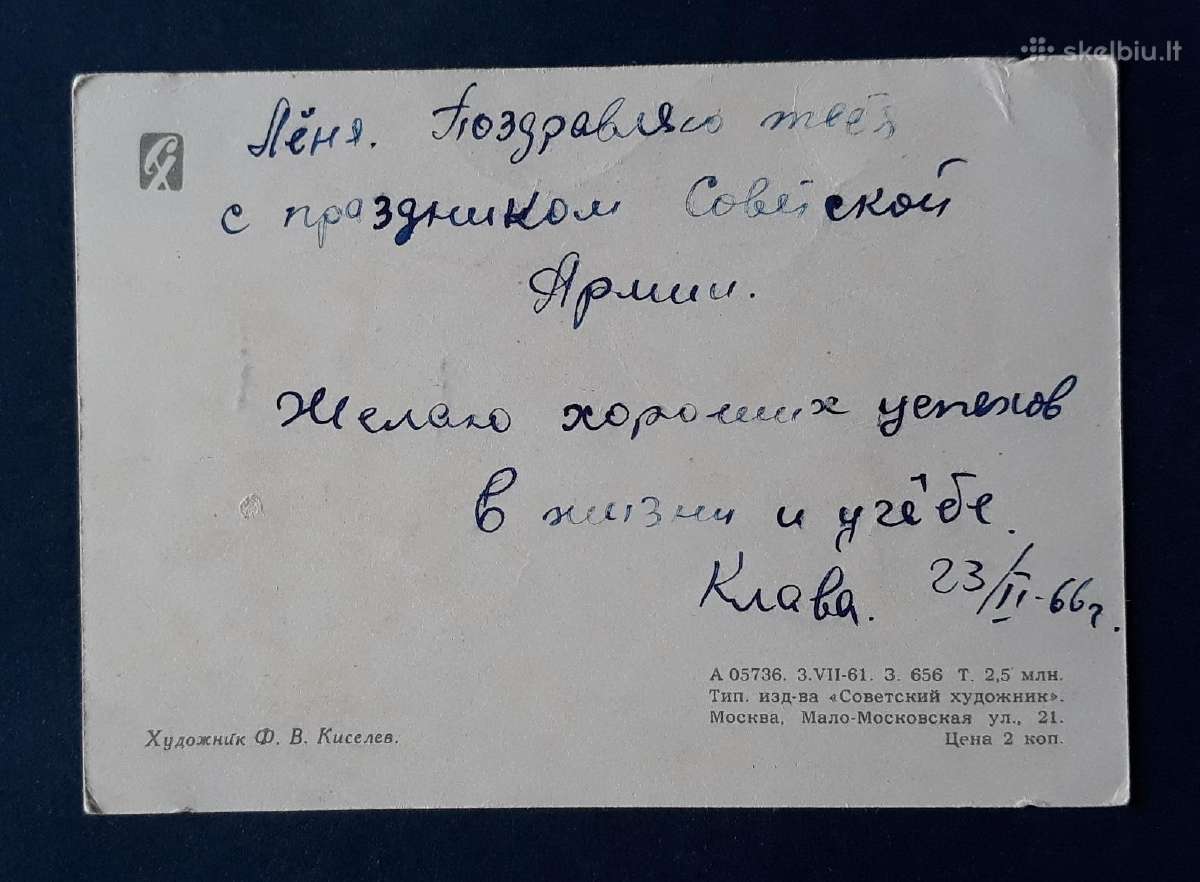 skelbiu.lt
Лёня. Поздравляю тебя
с праздником Советской
Армии.
Желаю хороших успехов
в жизни и учёбе.
Клава. 23/II-66г.
А 05736. 3.VII-61. З. 656 Т. 2,5 млн.
Тип. изд-ва «Советский художник».
Москва, Мало-Московская ул., 21.
Цена 2 коп.
Художник Ф. В. Киселев.